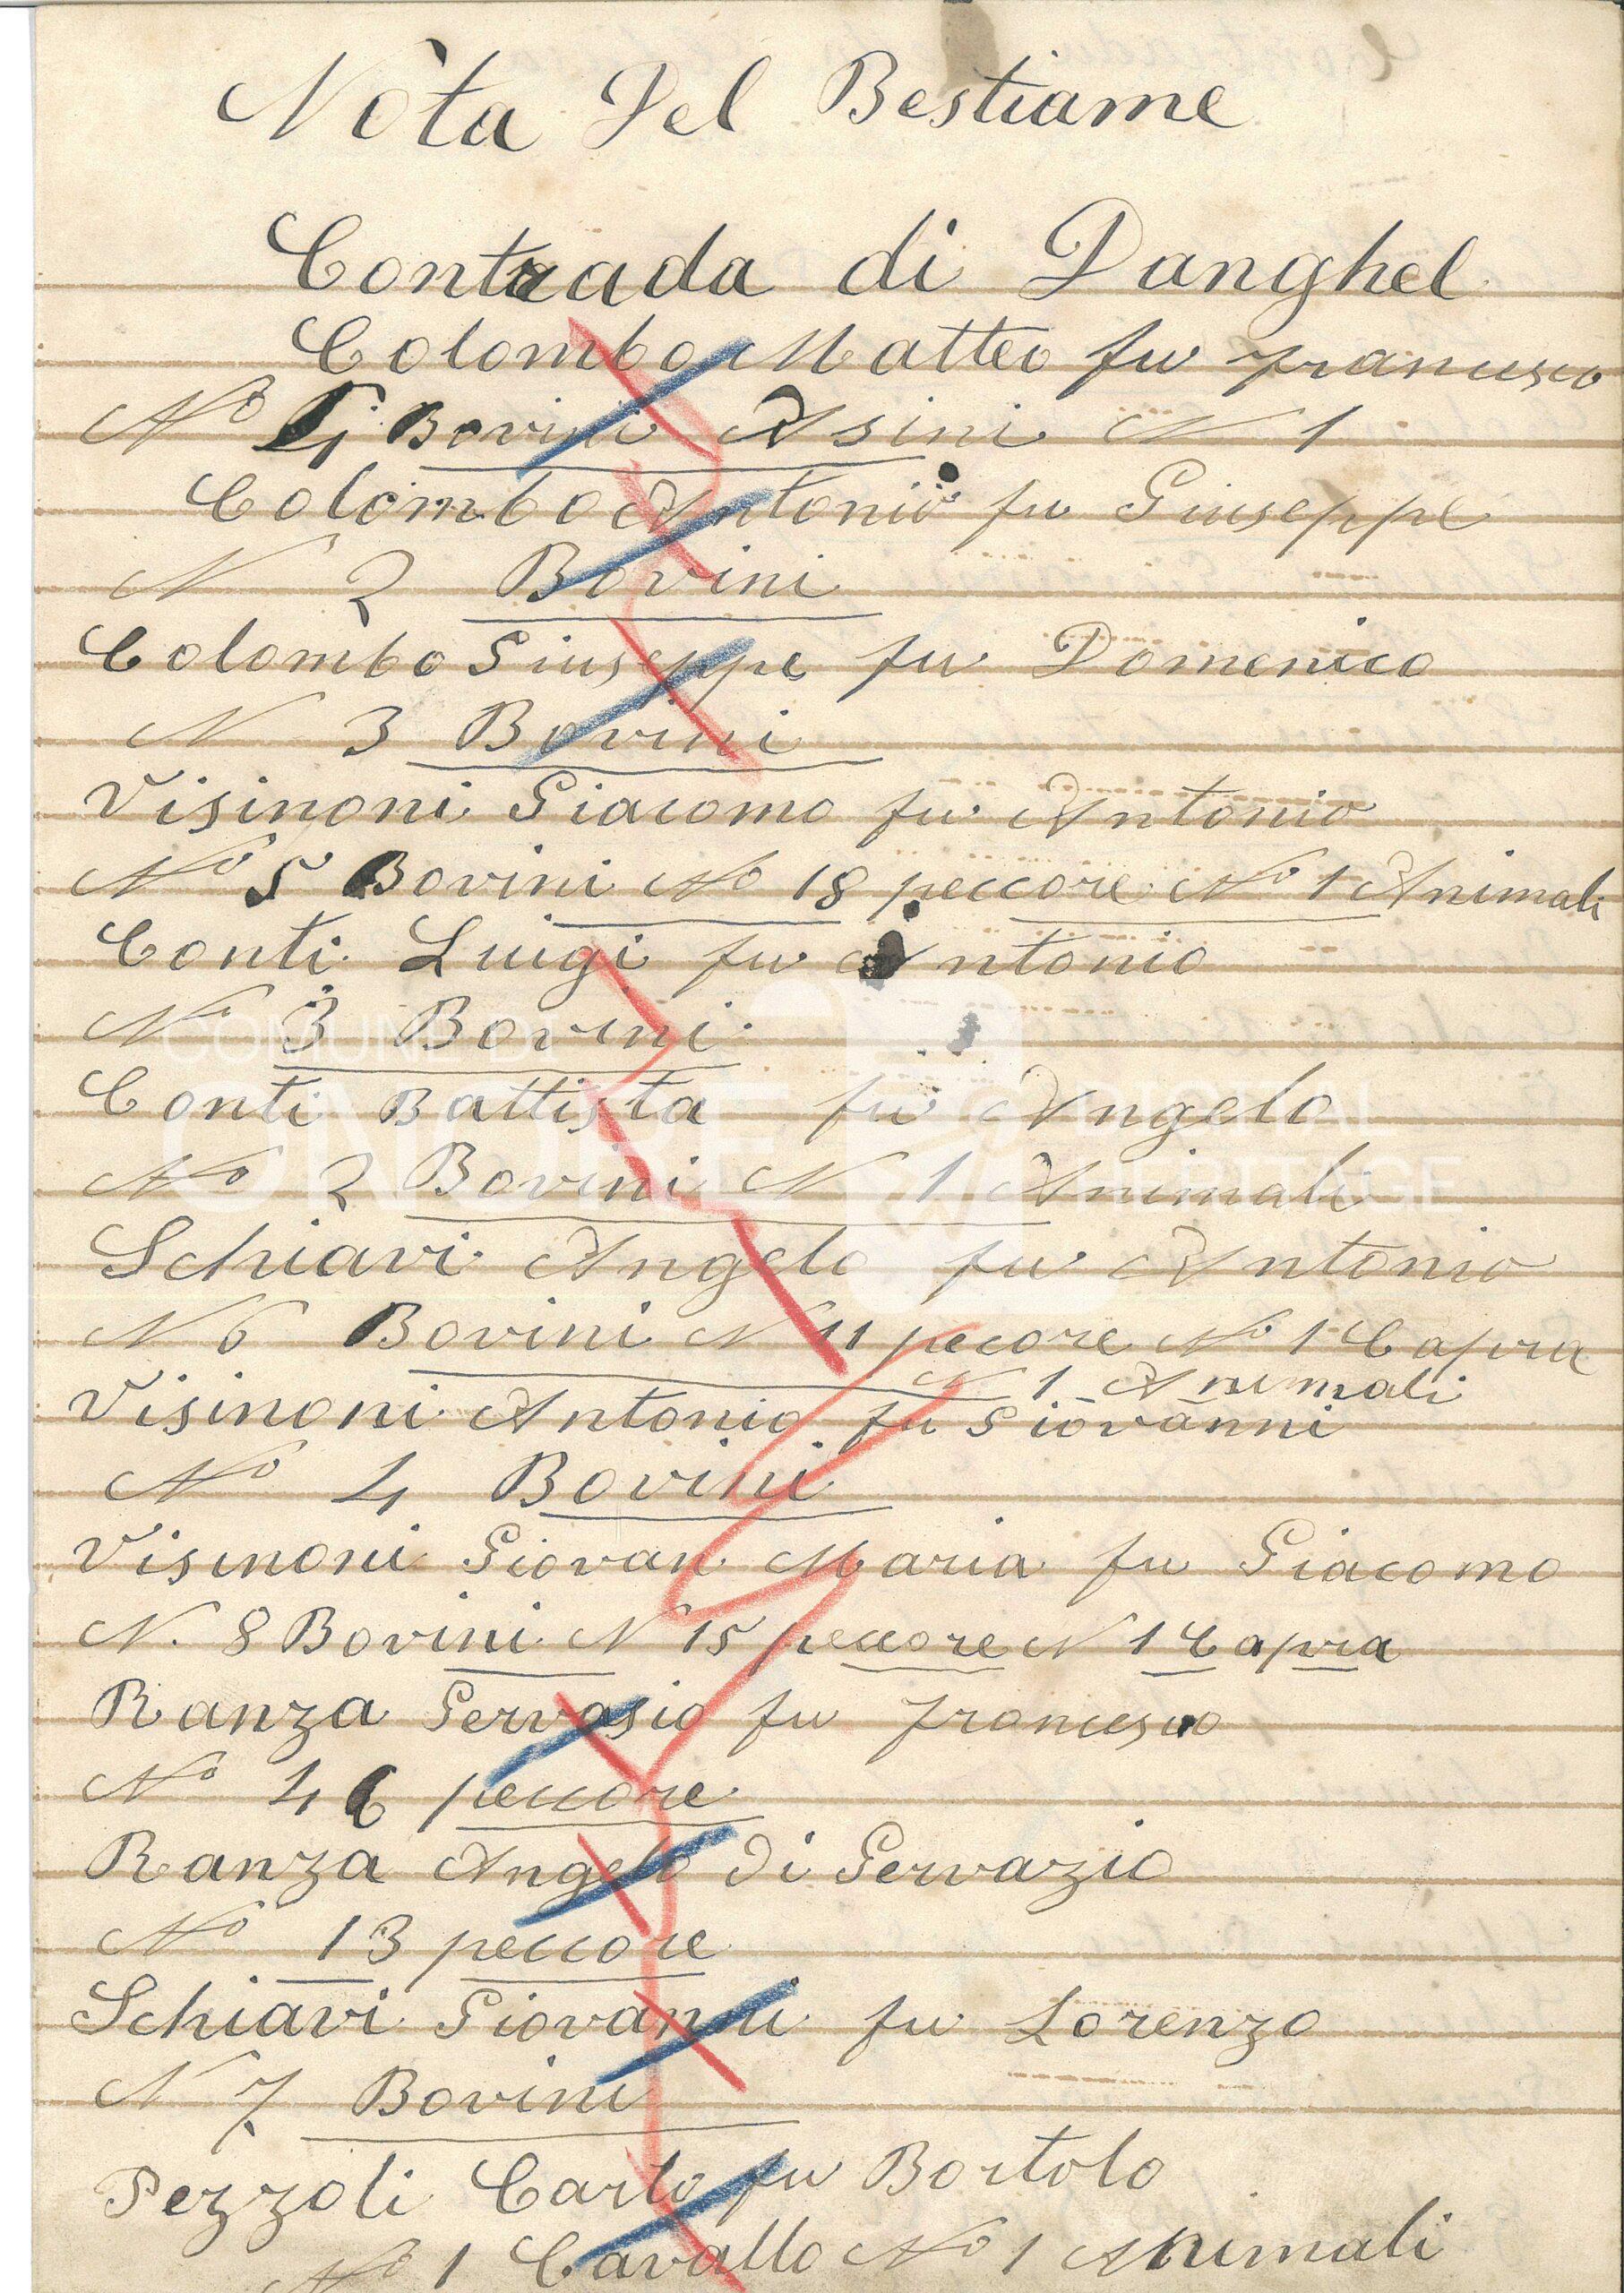 Nòta Del Bestiame
Contrada di Danghel
Colombo Matteo fu Francesco
No 4 Bovini Asini N 1
Colombo Antonio fu Giuseppe
N 2 Bovini
Colombo Giuseppe fu Domenico
N 3 Bovini
Visinoni Giacomo fu Antonio
No 5 Bovini No 18 peccore No 1 Animali
Conti Luigi fu Antonio
N 3 Bovini
COMUNE DI
ONORE
DIGITAL
HERITAGE
Conti Battista fu Angelo
No 2 Bovini N 1 Animali
Schiavi Angelo fu Antonio
N 6 Bovini N 11 pecore No 1 Capra
N 1 Animali
Visinoni Antonio fu Giovanni
No 4 Bovini
Visinoni Giovan Maria fu Giacomo
N. 8 Bovini N 15 peccore N 1 Capra
Ranza Gervasio fu Francesco
No 46 peccore
Ranza Angelo di Gervazio
No 13 peccore
Schiavi Giovanni fu Lorenzo
N 7 Bovini
Pezzoli Carlo fu Bortolo
No 1 Cavallo No 1 Animali